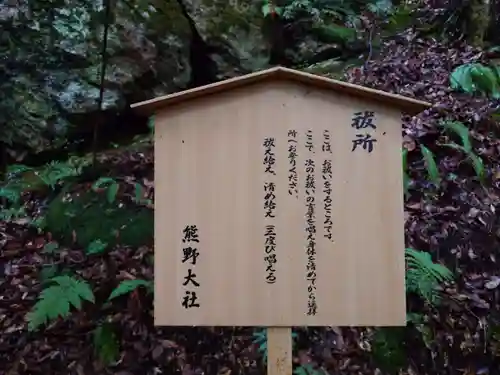 祓所
ここは、お祓いをするところです。
ここで、次のお祓いの言葉を唱え身体を清めてから遥拝
所へお参りください。
祓え給え 清め給え 三度び唱える)
熊野大社